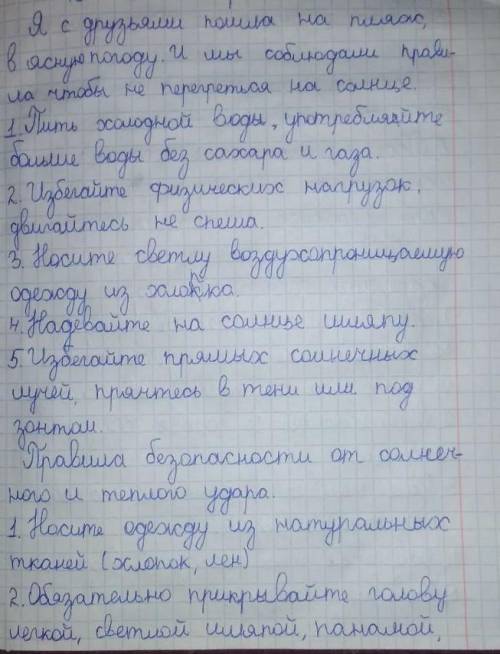 Я с друзьями пошла на пляж,
в ясную погоду. И мы соблюдали прави-
ла чтобы не перегреться на солнце.
1. Пить холодной воды, употребляйте
больше воды без сахара и газа.
2. Избегайте физических нагрузок,
двигайтесь не спеша.
3. Носите светлу воздухопроницаемую
одежду из хлопка.
4. Надевайте на солнце шляпу.
5. Избегайте прямых солнечных
лучей, прячтесь в тени или под
зонтом.
Правила безопасности от солнеч-
ного и теплого удара.
1. Носите одежду из натуральных
тканей (хлопок, лен)
2. Обязательно прикрывайте голову
легкой, светлой шляпой, панамой,